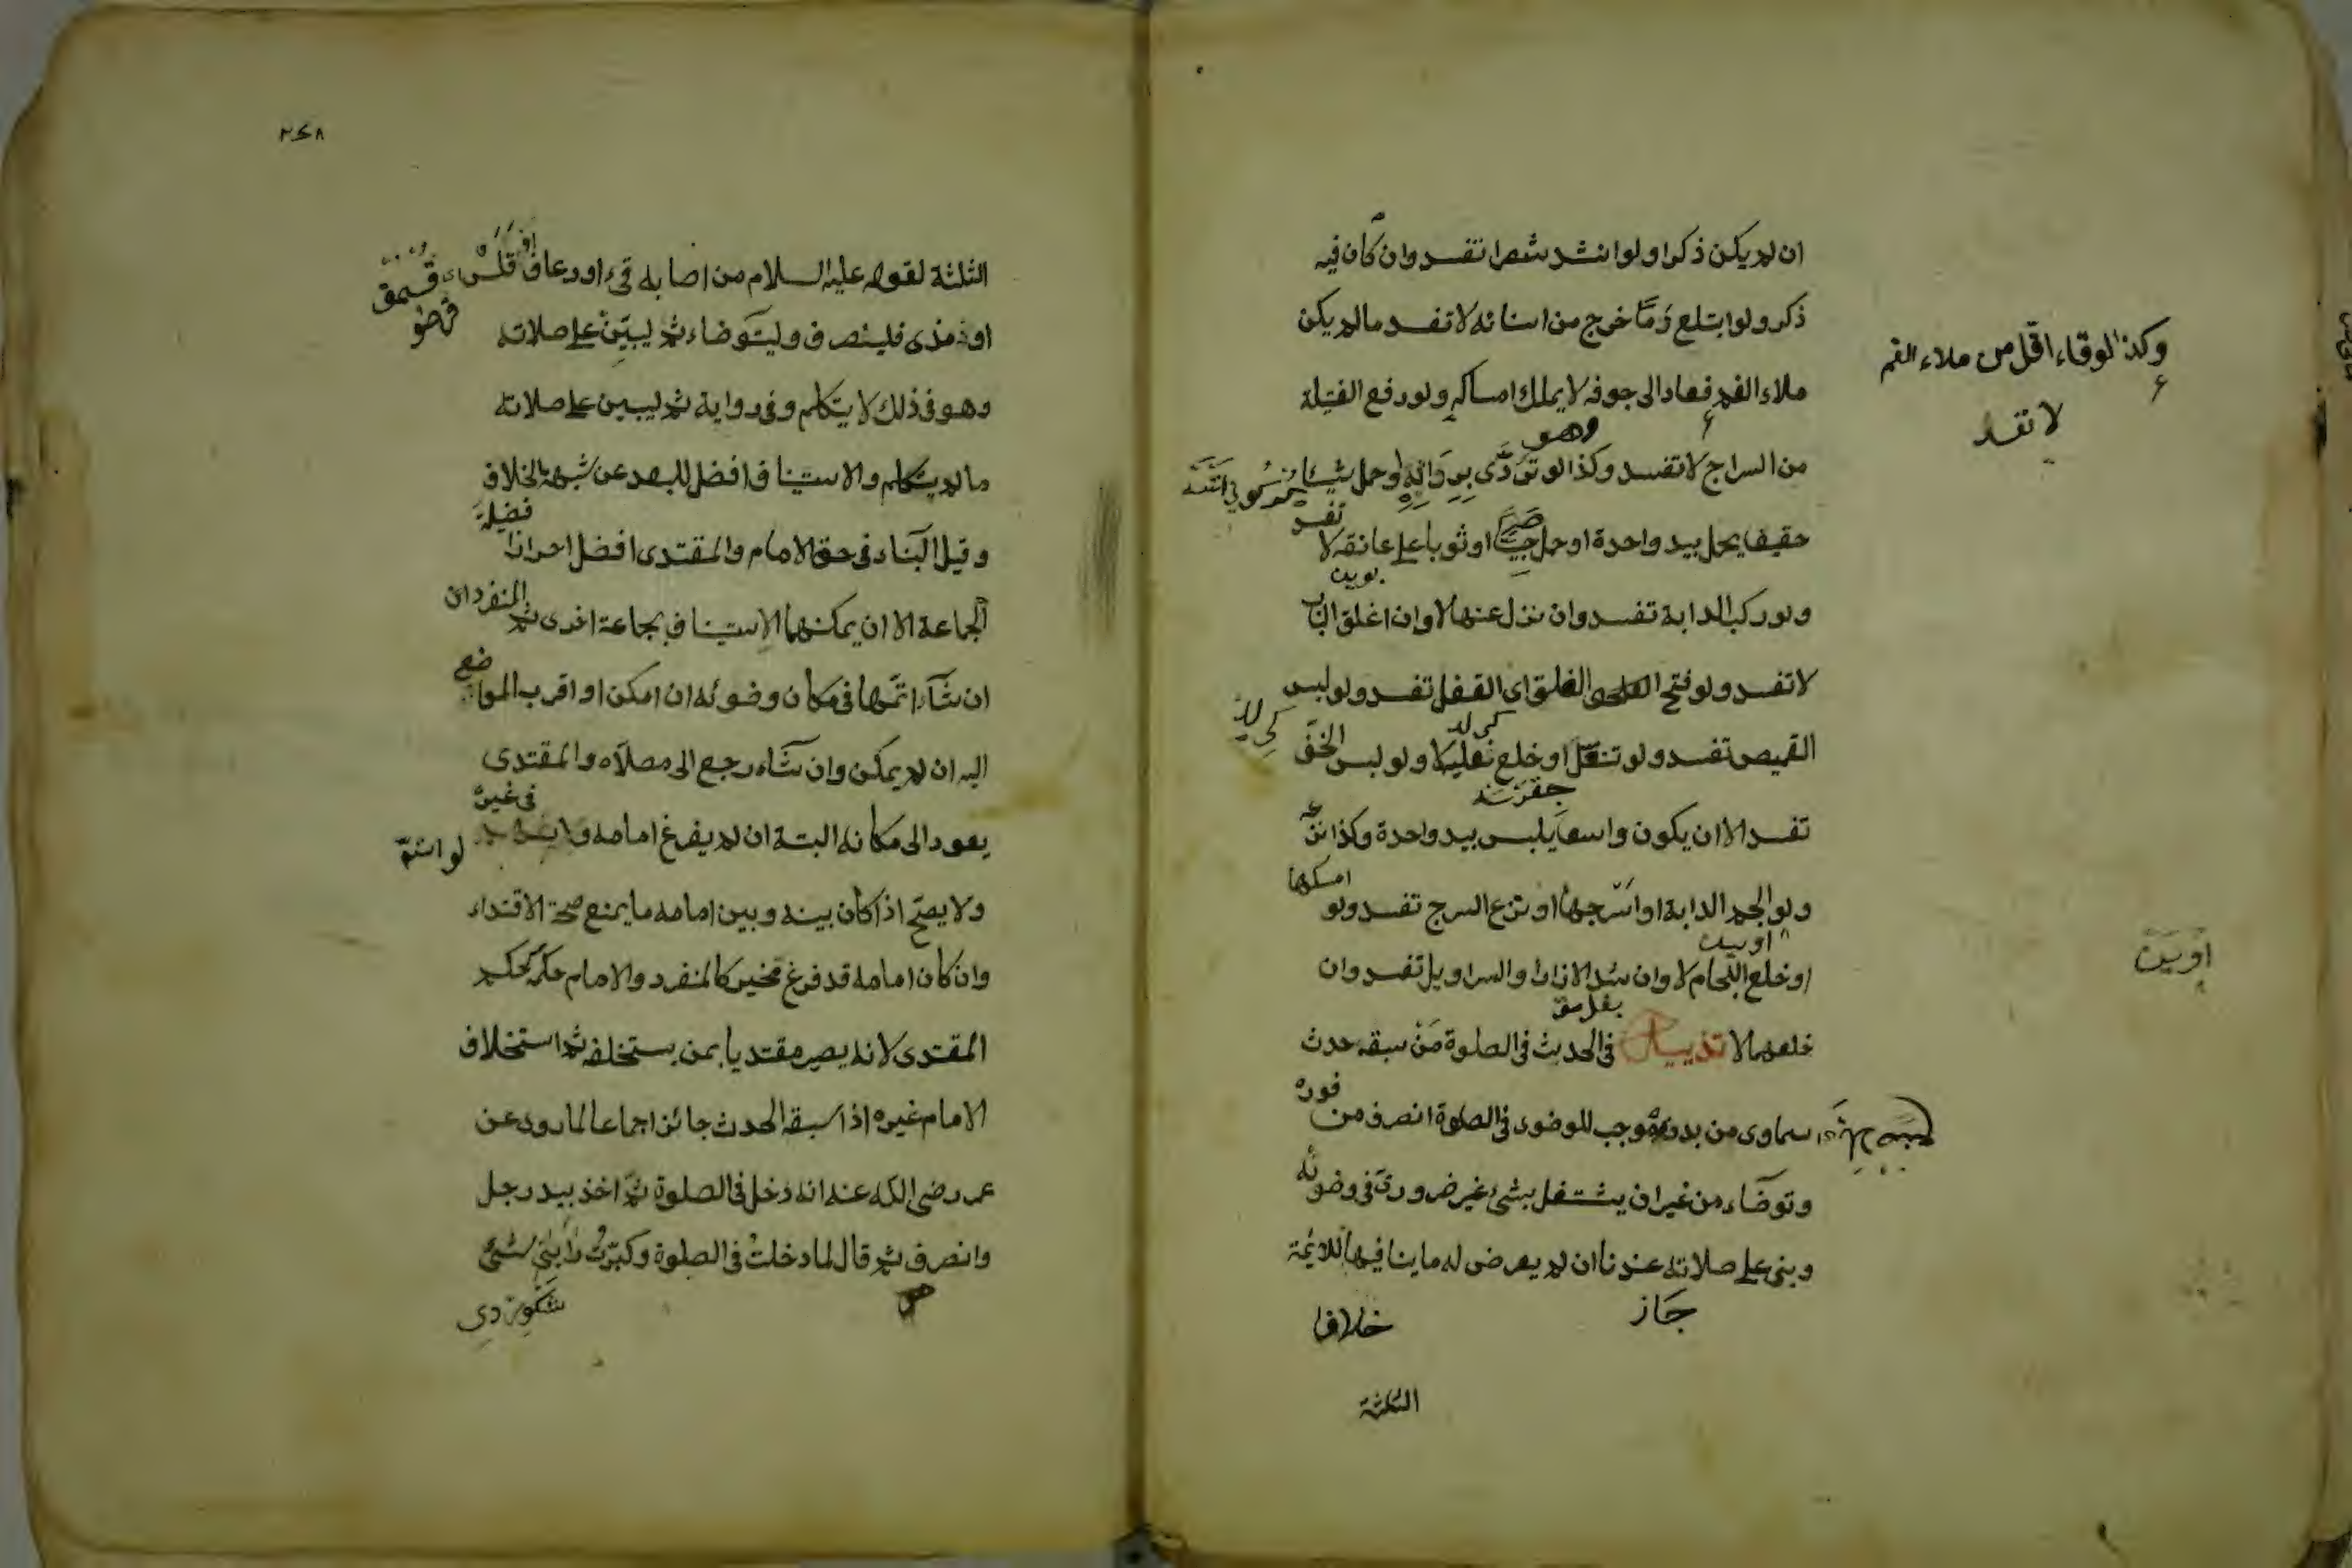 ان لم يكن ذكرا ولو انشد شعرا تفسد وان كان فيه
ذكر ولو ابتلع دمًا خرج من اسنانه لا تفسد ما لم يكن
ملاء الفم فعاد الى جوفه لا يملك امساكه ولو رفع الفتيلة
وكذا لوقاء اقل من ملاء الفم
لا تفسد
وهو
من السراج لا تفسد وكذا لو تردّى بردائه او حمل شيئا
خفيفا يحمل بيد واحدة او حمل صبيا او ثوبا على عاتقه لا
تفسد
ولو ركب الدابة تفسد وان نزل عنها لا وان اغلق الباب
لا تفسد ولو فتح الغلق اى القفل تفسد ولو لبس
القميص تفسد ولو تنعّل او خلع نعليه لا ولو لبس الخفّ
تفسد الا ان يكون واسعا يلبس بيد واحدة وكذا
ولو الجم الدابة او اسرجها او نزع السرج تفسد ولو
امسكها
او خلع اللجام لا وان شد الازار والسراويل تفسد وان
خلعهما لا تذييل فى الحدث فى الصلوة مَنْ سبقه حدث
سماوى من بدنه موجب للوضوء فى الصلوة انصرف من
فوره
وتوضّاء من غير ان يشتغل بشئ غير ضرورى فى وضوئه
وبنى على صلاته عندنا ان لم يعرض له ما ينافيها للائمة
جاز
خلافا
الثلثة
٢٤٨
الثلثة لقوله عليه السلام من اصابه قئ او رعاف او قلس
او مذى فلينصرف وليتوضاء ثم ليبين على صلاته
وهو فى ذلك لا يتكلم وفى رواية ثم ليبين على صلاته
ما لم يتكلم والاستيناف افضل للبعد عن شبهة الخلاف
وقيل البناء فى حق الامام والمقتدى افضل احرازا
فضيلة
الجماعة الا ان يمكنهما الاستيناف بجماعة اخرى ثم
المنفرد ان
ان شاء اتمها فى مكان وضوئه ان امكن او اقرب المواضع
اليه ان لم يمكن وان شاء رجع الى مصلاه والمقتدى
يعود الى مكانه البتة ان لم يفرغ امامه
لو اتمّ
فى غيره
ولا يصحّ اذا كان بينه وبين امامه ما يمنع صحة الاقتداء
وان كان امامه قد فرغ تخير كالمنفرد والامام حكمه كحكم
المقتدى لانه يصير مقتديا بمن يستخلفه ثم استخلاف
الامام غيره اذا سبقه الحدث جائز اجماعا لما روى عن
عمر رضى الله عنه انه دخل فى الصلوة ثم اخذ بيد رجل
وانصرف ثم قال لما دخلتُ فى الصلوة وكبّرتُ رابنى شئ